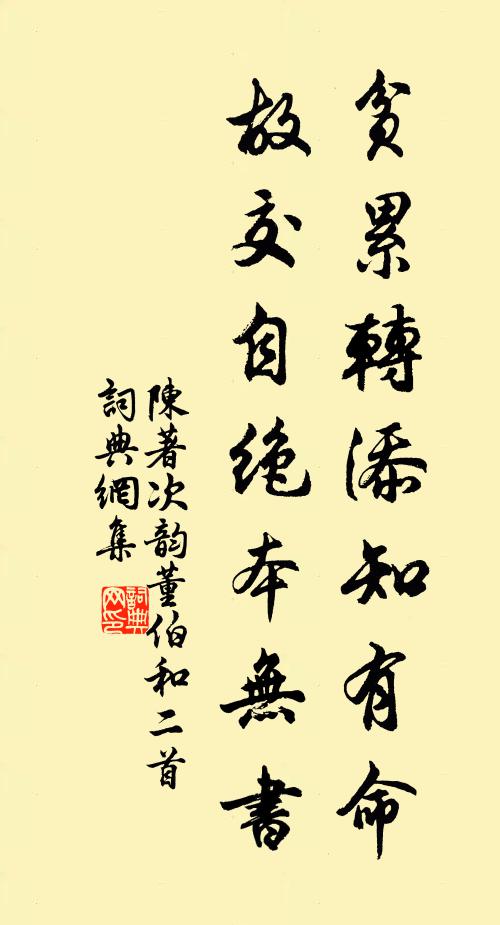 貧累轉添知有命
故交自絶本無書
陳著次韵董伯和二首
詞典網集
詞典网印